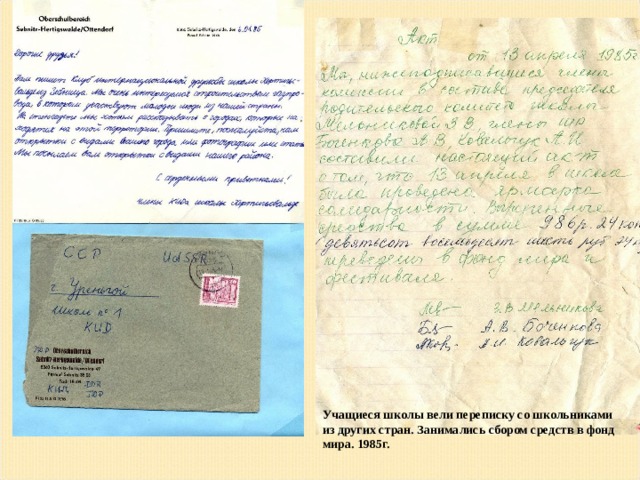 Oberschulbereich
Sebnitz-Hertigswalde/Ottendorf
Дорогие друзья!
Вам пишет Клуб интернациональной дружбы школы Хертигс-
вальде Зебница. Мы очень интересуемся строительством газопро-
вода, в котором участвуют молодые люди из нашей страны.
На стенгазеты мы хотим рассказывать о городах, которые на-
ходятся на этой территории. Пришлите, пожалуйста, нам
открытки с видами Вашего города или фотографии или статьи
Мы посылаем вам открытки с видами нашего района.
С сердечными приветами!
Члены КИДа школы Хертигсвальде
СССР UdSSR
г. Уренгой
школа № 1
КИД
Oberschulbereich
Sebnitz-Hertigswalde/Ottendorf
8360 Sebnitz-Hertigswalde
КИД
Акт
от 13 апреля 1985г
Мы, нижеподписавшиеся члены
комиссии в составе председателя
родительского комитета школы
Мельниковой З В. члены
Боченкова А В, Ковальчук А И
составили настоящий акт
о том, что 13 апреля в школе
была проведена ярмарка
солидарности. Вырученные
средства в сумме 986р. 24 коп
(девятьсот восемьдесят шесть руб 24 к
переведены в фонд мира и
фестиваля.
З.В Мельникова
А.В. Боченкова
А И Ковальчук
Учащиеся школы вели переписку со школьниками
из других стран. Занимались сбором средств в фонд
мира. 1985г.